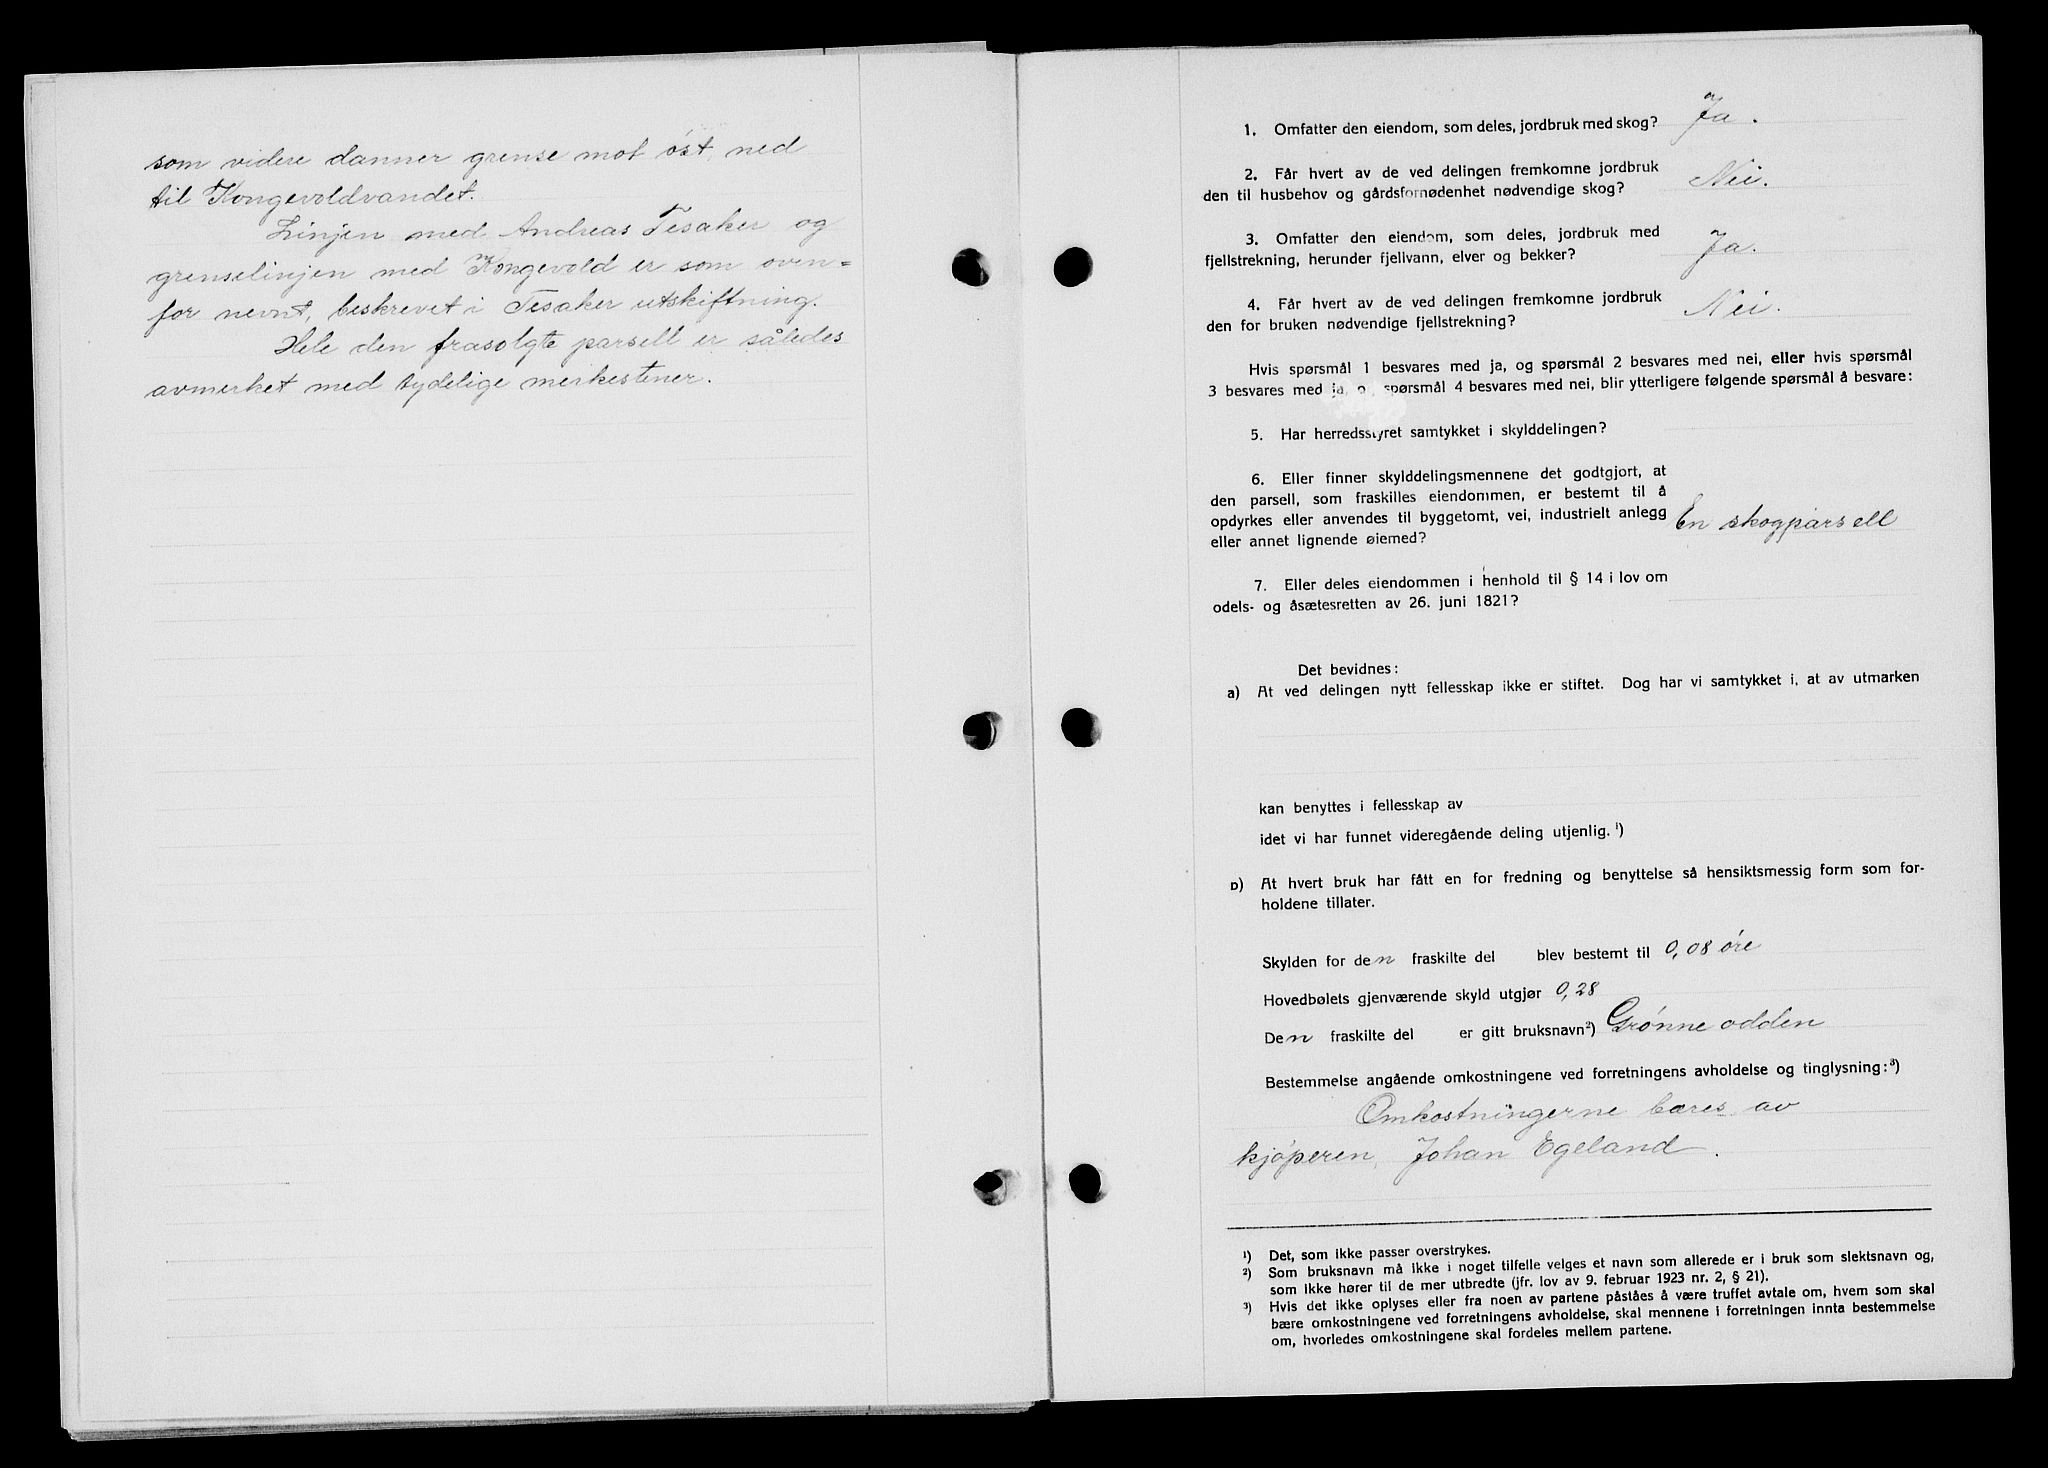 som videre danner grense mot øst, ned
til Kongevoldvandet.
Linjen med Andreas Tesaker og
grenselinjen med Kongevold er som oven=
for nevnt, beskrevet i Tesaker utskiftning.
Hele den frasolgte parsell er således
avmerket med tydelige merkestener.
1. Omfatter den eiendom, som deles, jordbruk med skog? Ja.
2. Får hvert av de ved delingen fremkomne jordbruk
den til husbehov og gårdsfornødenhet nødvendige skog? Nei.
3. Omfatter den eiendom, som deles, jordbruk med
fjellstrekning, herunder fjellvann, elver og bekker? Ja.
4. Får hvert av de ved delingen fremkomne jordbruk
den for bruken nødvendige fjellstrekning? Nei.
Hvis spørsmål 1 besvares med ja, og spørsmål 2 besvares med nei, eller hvis spørsmål
3 besvares med ja, og spørsmål 4 besvares med nei, blir ytterligere følgende spørsmål å besvare:
5. Har herredsstyret samtykket i skylddelingen?
6. Eller finner skylddelingsmennene det godtgjort, at
den parsell, som fraskilles eiendommen, er bestemt til å
opdyrkes eller anvendes til byggetomt, vei, industrielt anlegg
eller annet lignende øiemed? En skogparsell
7. Eller deles eiendommen i henhold til § 14 i lov om
odels- og åsætesretten av 26. juni 1821?
Det bevidnes:
a) At ved delingen nytt fellesskap ikke er stiftet. Dog har vi samtykket i, at av utmarken
kan benyttes i fellesskap av
idet vi har funnet videregående deling utjenlig. ¹)
b) At hvert bruk har fått en for fredning og benyttelse så hensiktsmessig form som for-
holdene tillater.
Skylden for den fraskilte del blev bestemt til 0,08 øre
Hovedbølets gjenværende skyld utgjør 0,28
Den fraskilte del er gitt bruksnavn²) Grønne odden
Bestemmelse angående omkostningene ved forretningens avholdelse og tinglysning:³)
Omkostningerne bæres av
kjøperen, Johan Egeland.
¹) Det, som ikke passer overstrykes.
²) Som bruksnavn må ikke i noget tilfelle velges et navn som allerede er i bruk som slektsnavn og,
som ikke hører til de mer utbredte (jfr. lov av 9. februar 1923 nr. 2, § 21).
³) Hvis det ikke oplyses eller fra noen av partene påståes å være truffet avtale om, hvem som skal
bære omkostningene ved forretningens avholdelse, skal mennene i forretningen innta bestemmelse
om, hvorledes omkostningene skal fordeles mellem partene.